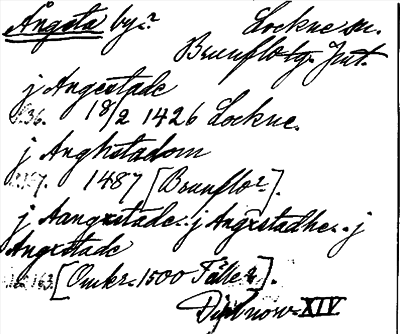 Ångsta by? Lockne sn.
Brunflo tg. Jmt.
j Angestade
18/2 1426 Lockne.
j Anghstadom
1487 [Brunflo?].
j Aangxstade - j Angxstadhe - j
Angxstade
[Omkr. 1500 Fålle?].
Dipl. norv. XIV